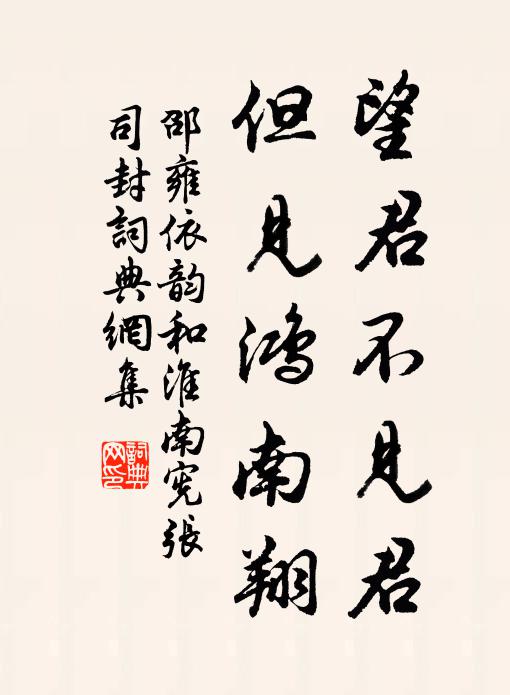 望君不見君
但見鴻南翔
邵雍依韵和淮南宪張
司封詞典網集
詞典
网印